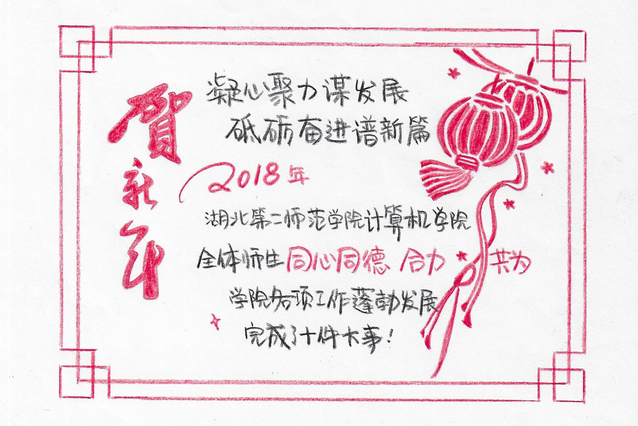 贺新年
凝心聚力谋发展
砥砺奋进谱新篇
2018年
湖北第二师范学院计算机学院
全体师生同心同德 合力 共为
学院各项工作蓬勃发展
完成了十件大事!